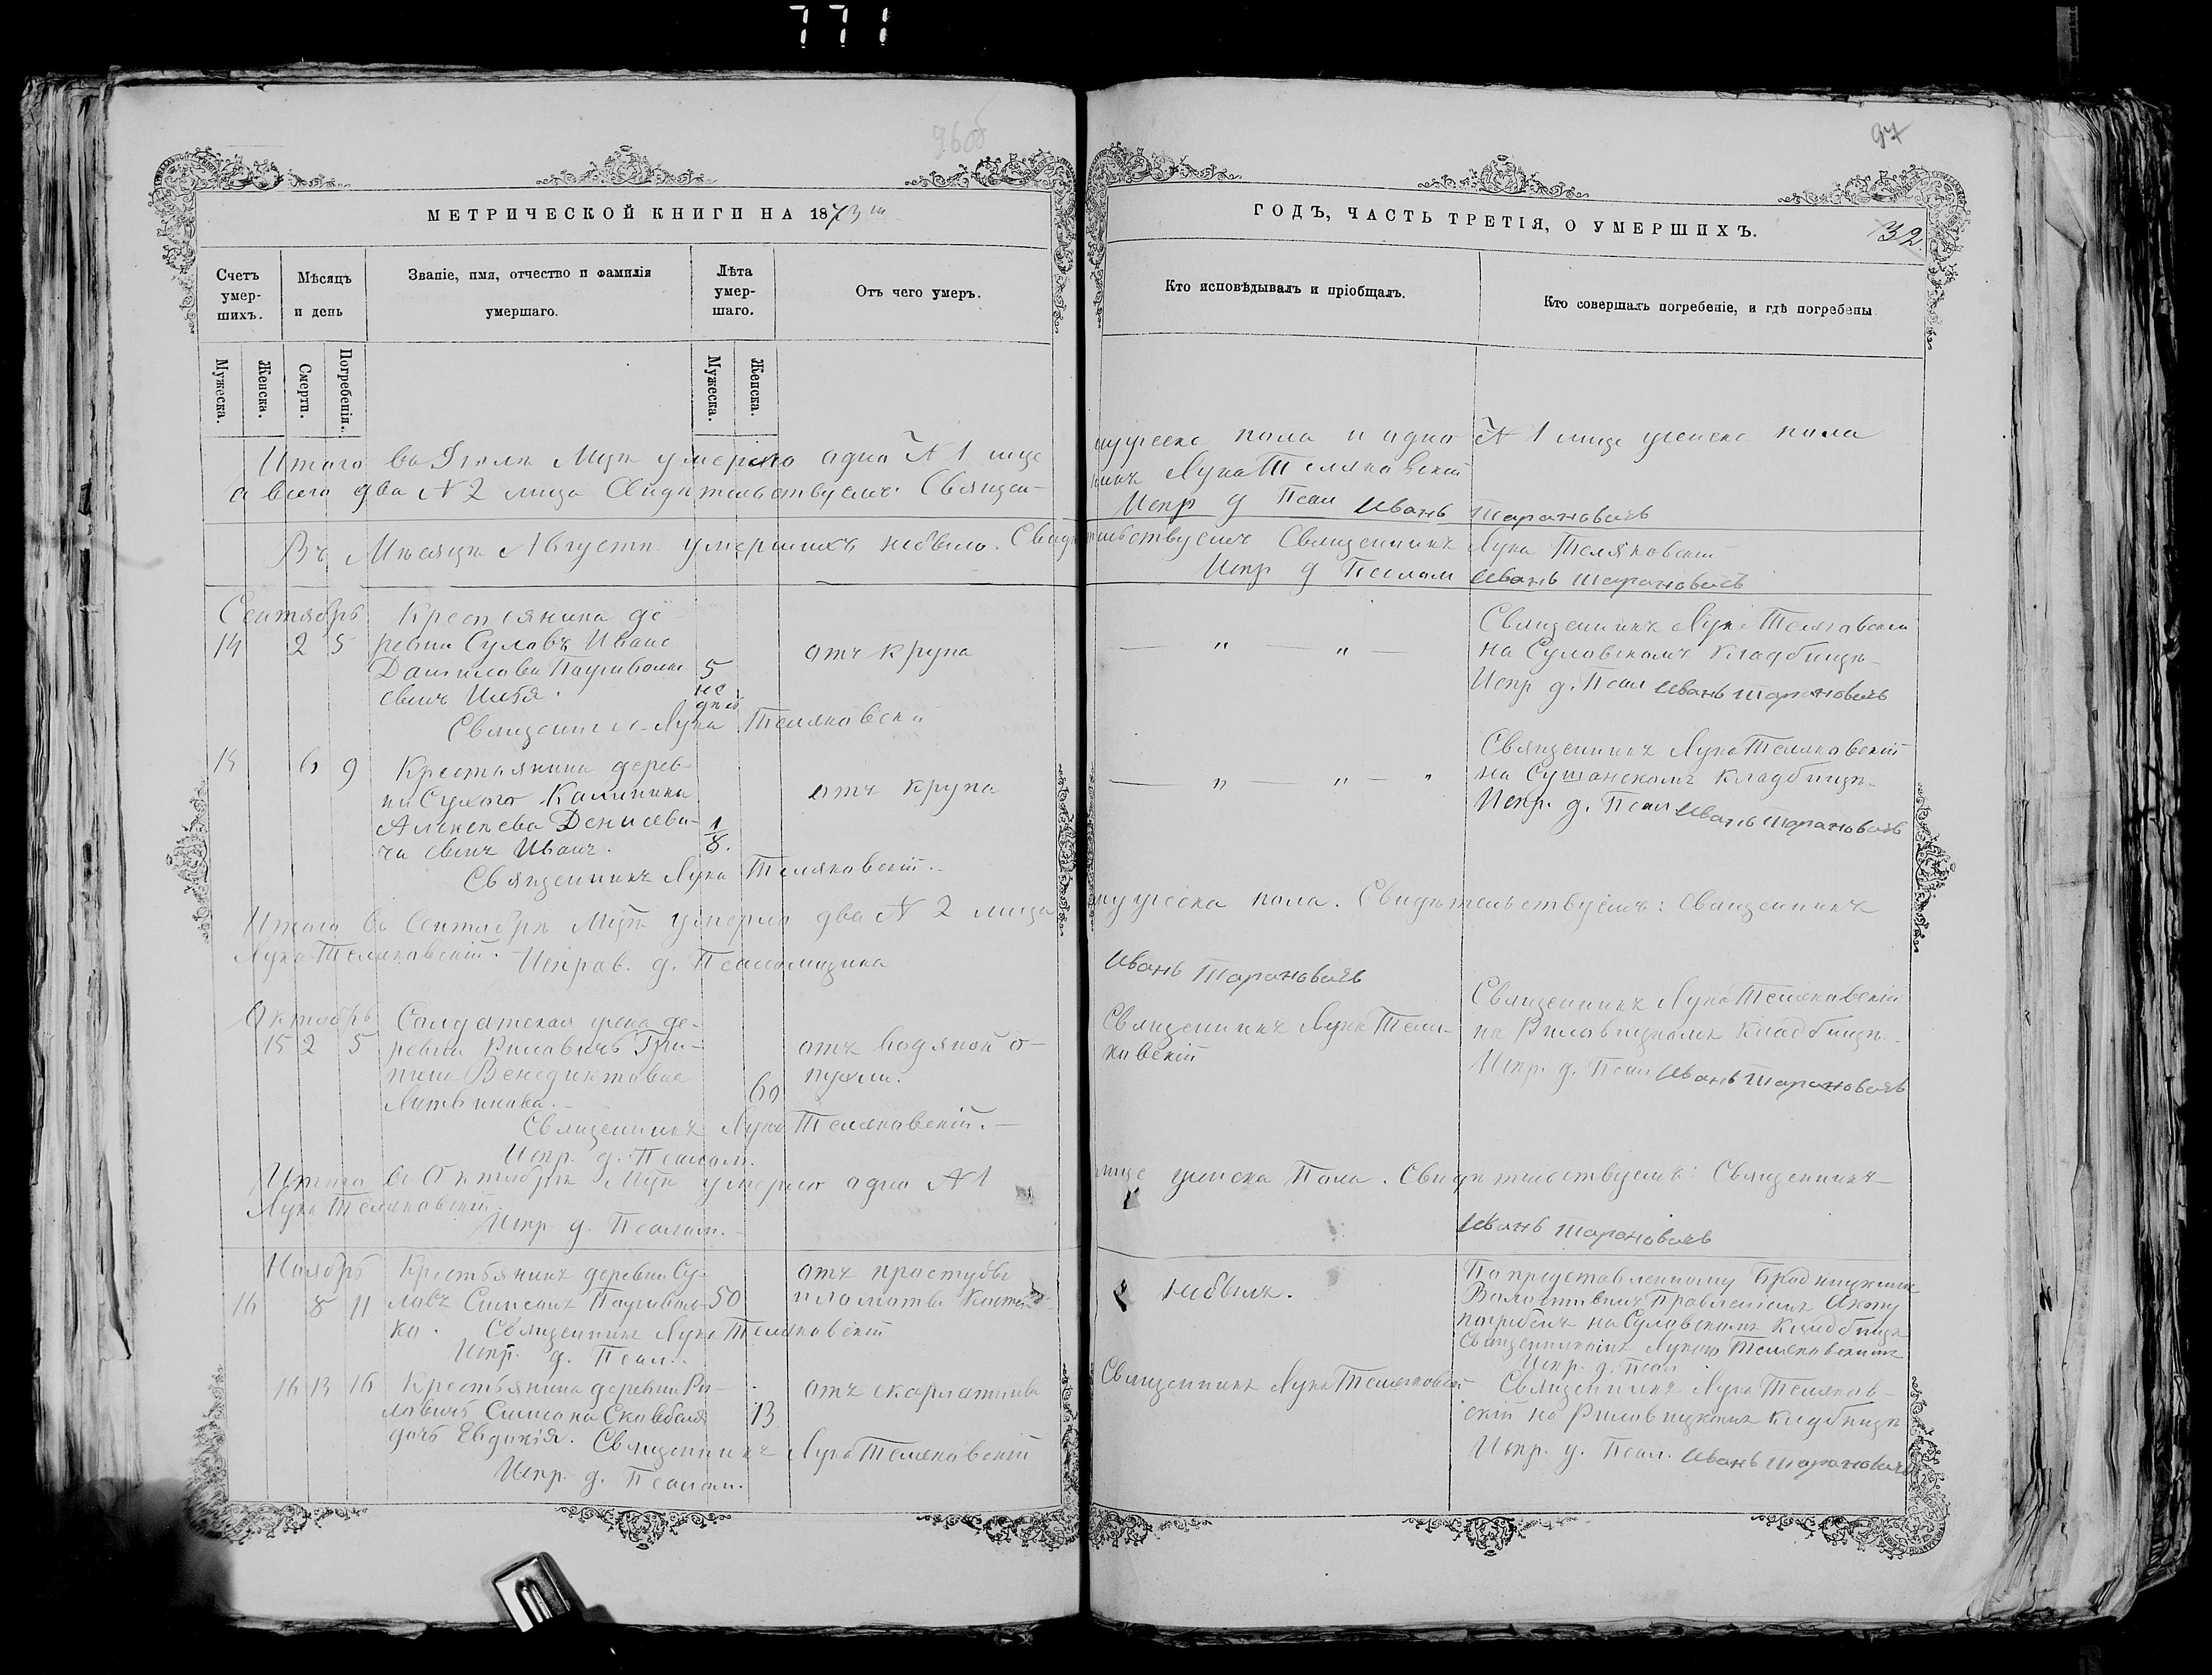 771
96об
97
МЕТРИЧЕСКОЙ КНИГИ НА 1873й
ГОДЪ, ЧАСТЬ ТРЕТІЯ, О УМЕРШИХЪ.
32
Счетъ умер-шихъ.
Мѣсяцъ и день
Званіе, имя, отчество и фамилія умершаго.
Лѣта умер-шаго.
Отъ чего умеръ.
Кто исповѣдывалъ и пріобщалъ.
Кто совершалъ погребеніе, и гдѣ погребены
Мужеска.
Женска.
Смерти.
Погребенія.
Мужеска.
Женска.
Итого въ Іюлѣ Мцѣ умерло одно № 1 лице
мужеска пола и одно № 1 лице женска пола
а всего два № 2 лица Свидѣтельствуемъ: Священ-
никъ Лука Теляковскій
Испр д Псал Иванъ Тарановичъ
Въ Мѣсяцѣ Августѣ умершихъ небыло. Свидѣтельствуемъ Священникъ Лука Теляковскій
Испр д Псалом Иванъ Тарановичъ
Сентябрь
14 2 5
Крестьянина де
ревни Суловъ Ивана
Данилова
сынъ Илья.
5
не
дѣль
отъ крупа
— „ — „ —
Священникъ Лука Теляковскій
на Суловскомъ Кладбищѣ
Испр д. Псал Иванъ Тарановичъ
Священникъ Лука Теляковскій
15 6 9
Крестьянина дерев-
ни Сухого Калиника
Алексѣева Денисеви-
ча сынъ Иванъ.
1/8.
отъ крупа
— „ — „ — „
Священникъ Лука Теляковскій
на Сушанскомъ Кладбищѣ
Испр. д. Псал Иванъ Тарановичъ
Священникъ Лука Теляковскій.
Итого въ Сентябрѣ Мцѣ умерло два № 2 лица
мужеска пола. Свидѣтельствуемъ: Священникъ
Лука Теляковскій. Исправ. д. Псаломщика
Иванъ Тарановичъ
Октябрь
15 2 5
Солдатская жена де-
ревни Риловичъ
Венедиктовна
Литвинова.
60
отъ водяной о-
пухли.
Священникъ Лука Теля-
ковскій
Священникъ Лука Теляковскій
на Риловицкомъ Кладбищѣ
Испр. д. Псал Иванъ Тарановичъ
Священникъ Лука Теляковскій.
Испр. д. Псалом.
Итого въ Октябрѣ Мцѣ умерло одно № 1
лице женска Пола. Свидѣтельствуемъ: Священникъ
Лука Теляковскій
Испр. д. Псалом.
Иванъ Тарановичъ
Ноябрь
16 8 11
Крестьянинъ деревни Су-
ловъ Симеонъ
ка.
50
отъ простуды
небылъ.
По представленному Бродницкимъ
Волостнымъ Правленіемъ Акту
погребенъ на Суловскомъ Кладбищѣ
Священникомъ Лукою Теляковскимъ
Испр. д. Псал
Священникъ Лука Теляковскій
Испр. д. Псал.
16 13 16
Крестьянина деревни Ри-
ловичъ Симеона
дочь Евдокія.
13
отъ скарлатины
Священникъ Лука Теляковскій
Священникъ Лука Теляков-
скій на Риловицкомъ кладбищѣ
Испр. д. Псал. Иванъ Тарановичъ
Священникъ Лука Теляковскій
Испр. д. Псалом.